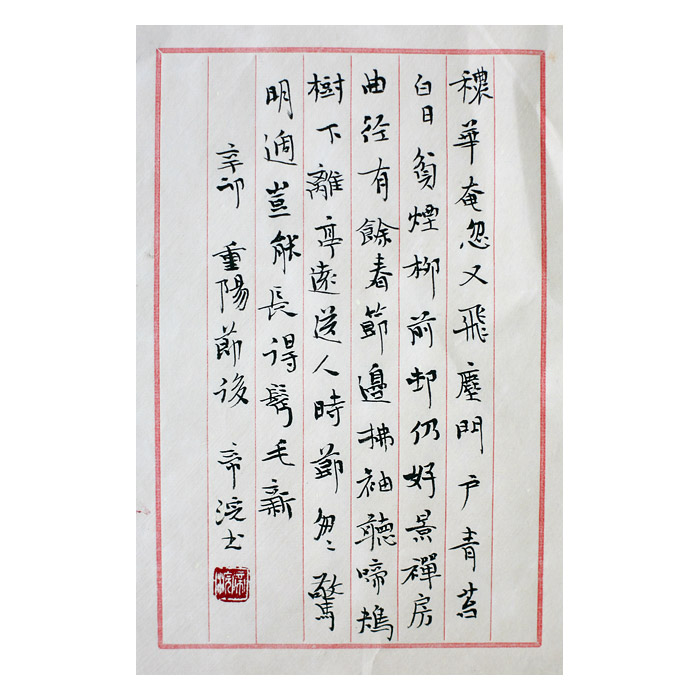 穠華奄忽又飛塵門戶青苔
白日貧煙柳前邨仍好景禪房
曲径有餘春節邊拂袖聽啼鴂
樹下離亭遠送人時節匆匆驚
明豈能長得鬢毛新
辛卯 重陽節後 帝浣书